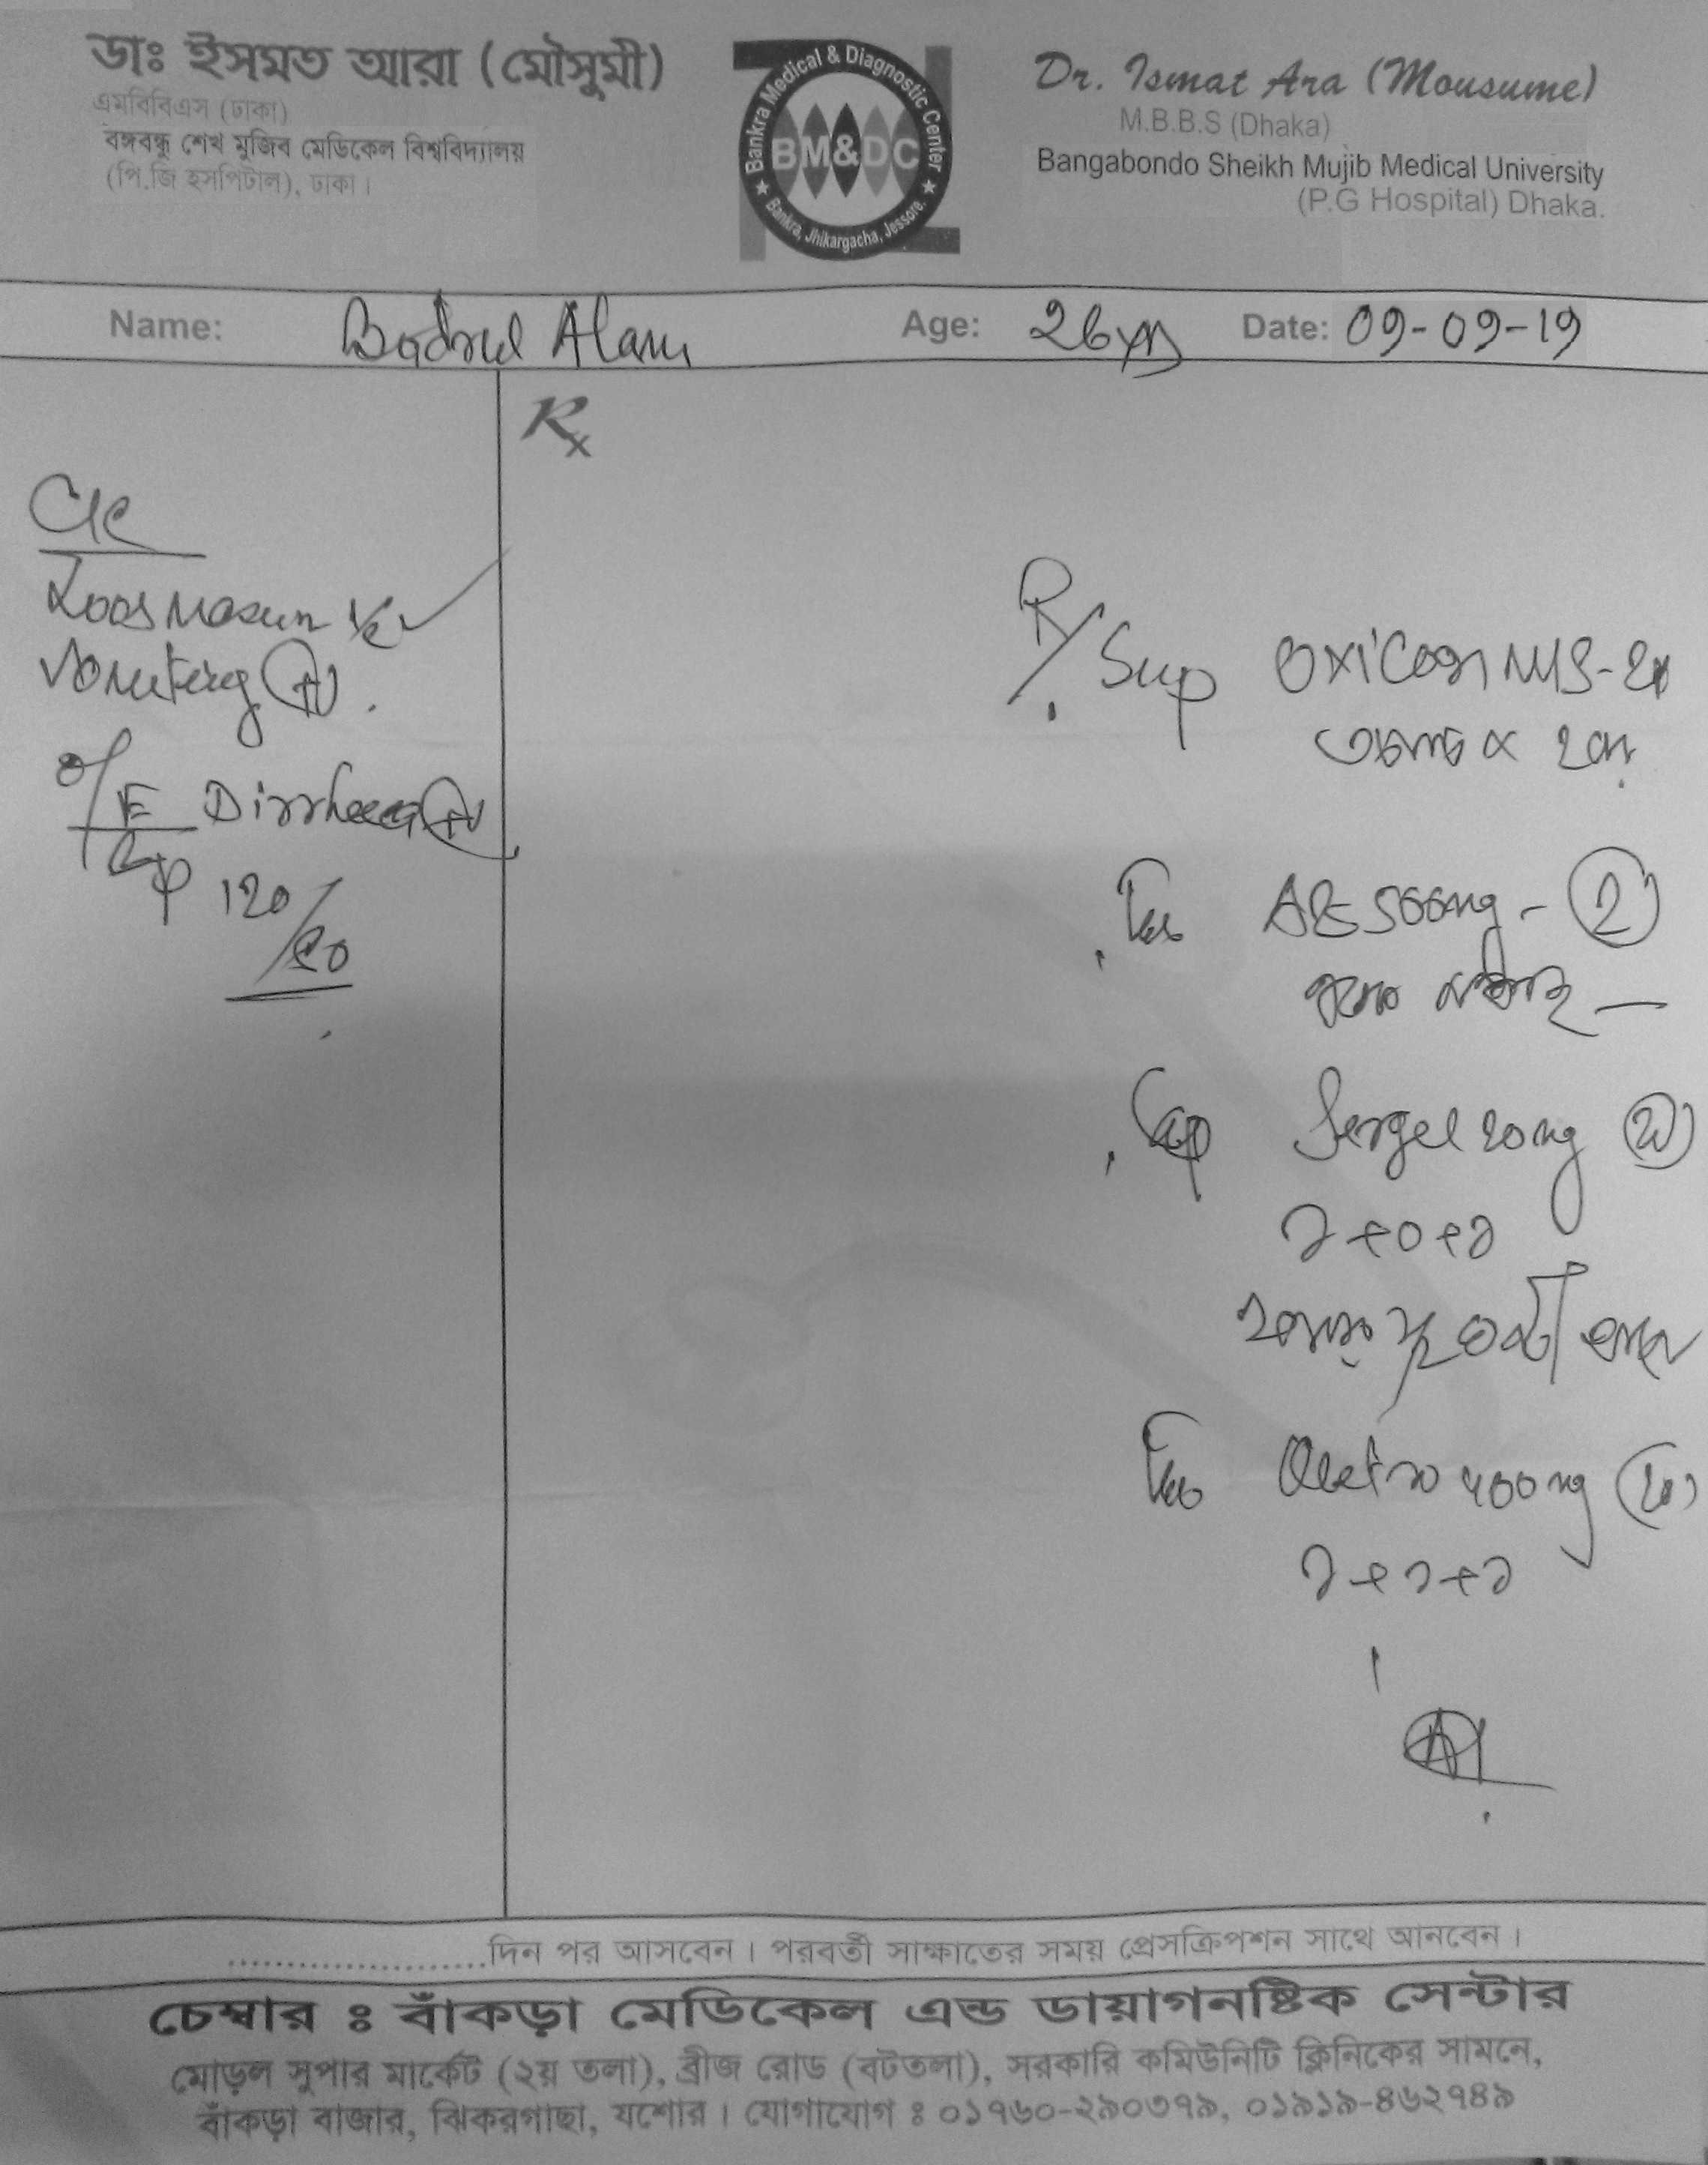 ডাঃ ইসমত আরা (মৌসুমী)
এমবিবিএস (ঢাকা)
বঙ্গবন্ধু শেখ মুজিব মেডিকেল বিশ্ববিদ্যালয়
(পি.জি হসপিটাল), ঢাকা।
Bankra Medical & Diagnostic Center
BM&DC
Bankra, Jhikargacha, Jessore.
Dr. Ismat Ara (Mousume)
M.B.B.S (Dhaka)
Bangabondo Sheikh Mujib Medical University
(P.G Hospital) Dhaka.
Name: Badrul Alam Age: 26 yrs Date: 09-09-19
Rx
C/C
Vomiting (+)
O/E Dirrhoea (+)
Bp 120/80
R/
Sup
Tab 500mg - (2)
Cap Sergel 20mg
১+০+১
Tab 400mg
১+১+১
....................দিন পর আসবেন। পরবর্তী সাক্ষাতের সময় প্রেসক্রিপশন সাথে আনবেন।
চেম্বার ঃ বাঁকড়া মেডিকেল এন্ড ডায়াগনষ্টিক সেন্টার
মোড়ল সুপার মার্কেট (২য় তলা), ব্রীজ রোড (বটতলা), সরকারি কমিউনিটি ক্লিনিকের সামনে,
বাঁকড়া বাজার, ঝিকরগাছা, যশোর। যোগাযোগ ঃ ০১৭৬০-২৯০৩৭৯, ০১৯১৯-৪৬২৭৪৯